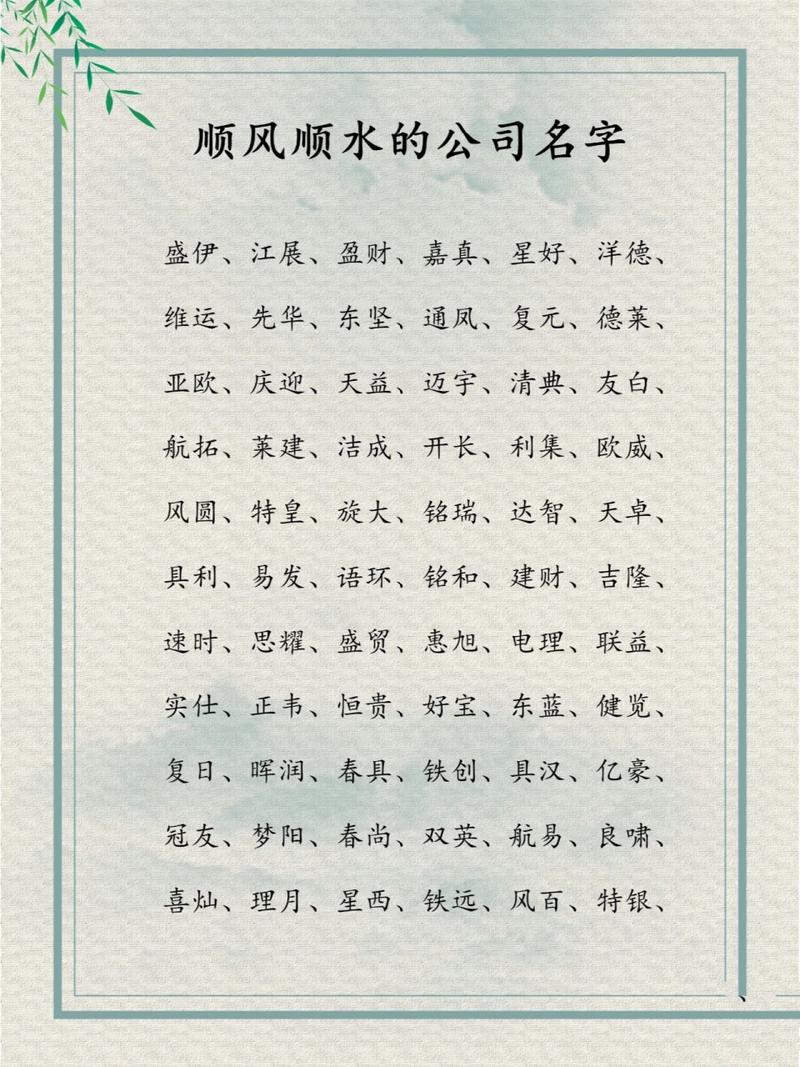 顺风顺水的公司名字
盛伊、江展、盈财、嘉真、星好、洋德、
维运、先华、东坚、通凤、复元、德莱、
亚欧、庆迎、天益、迈宇、清典、友白、
航拓、莱建、洁成、开长、利集、欧威、
风圆、特皇、旋大、铭瑞、达智、天卓、
具利、易发、语环、铭和、建财、吉隆、
速时、思耀、盛贸、惠旭、电理、联益、
实仕、正韦、恒贵、好宝、东蓝、健览、
复日、晖润、春具、铁创、具汉、亿豪、
冠友、梦阳、春尚、双英、航易、良啸、
喜灿、理月、星西、铁远、风百、特银、
、